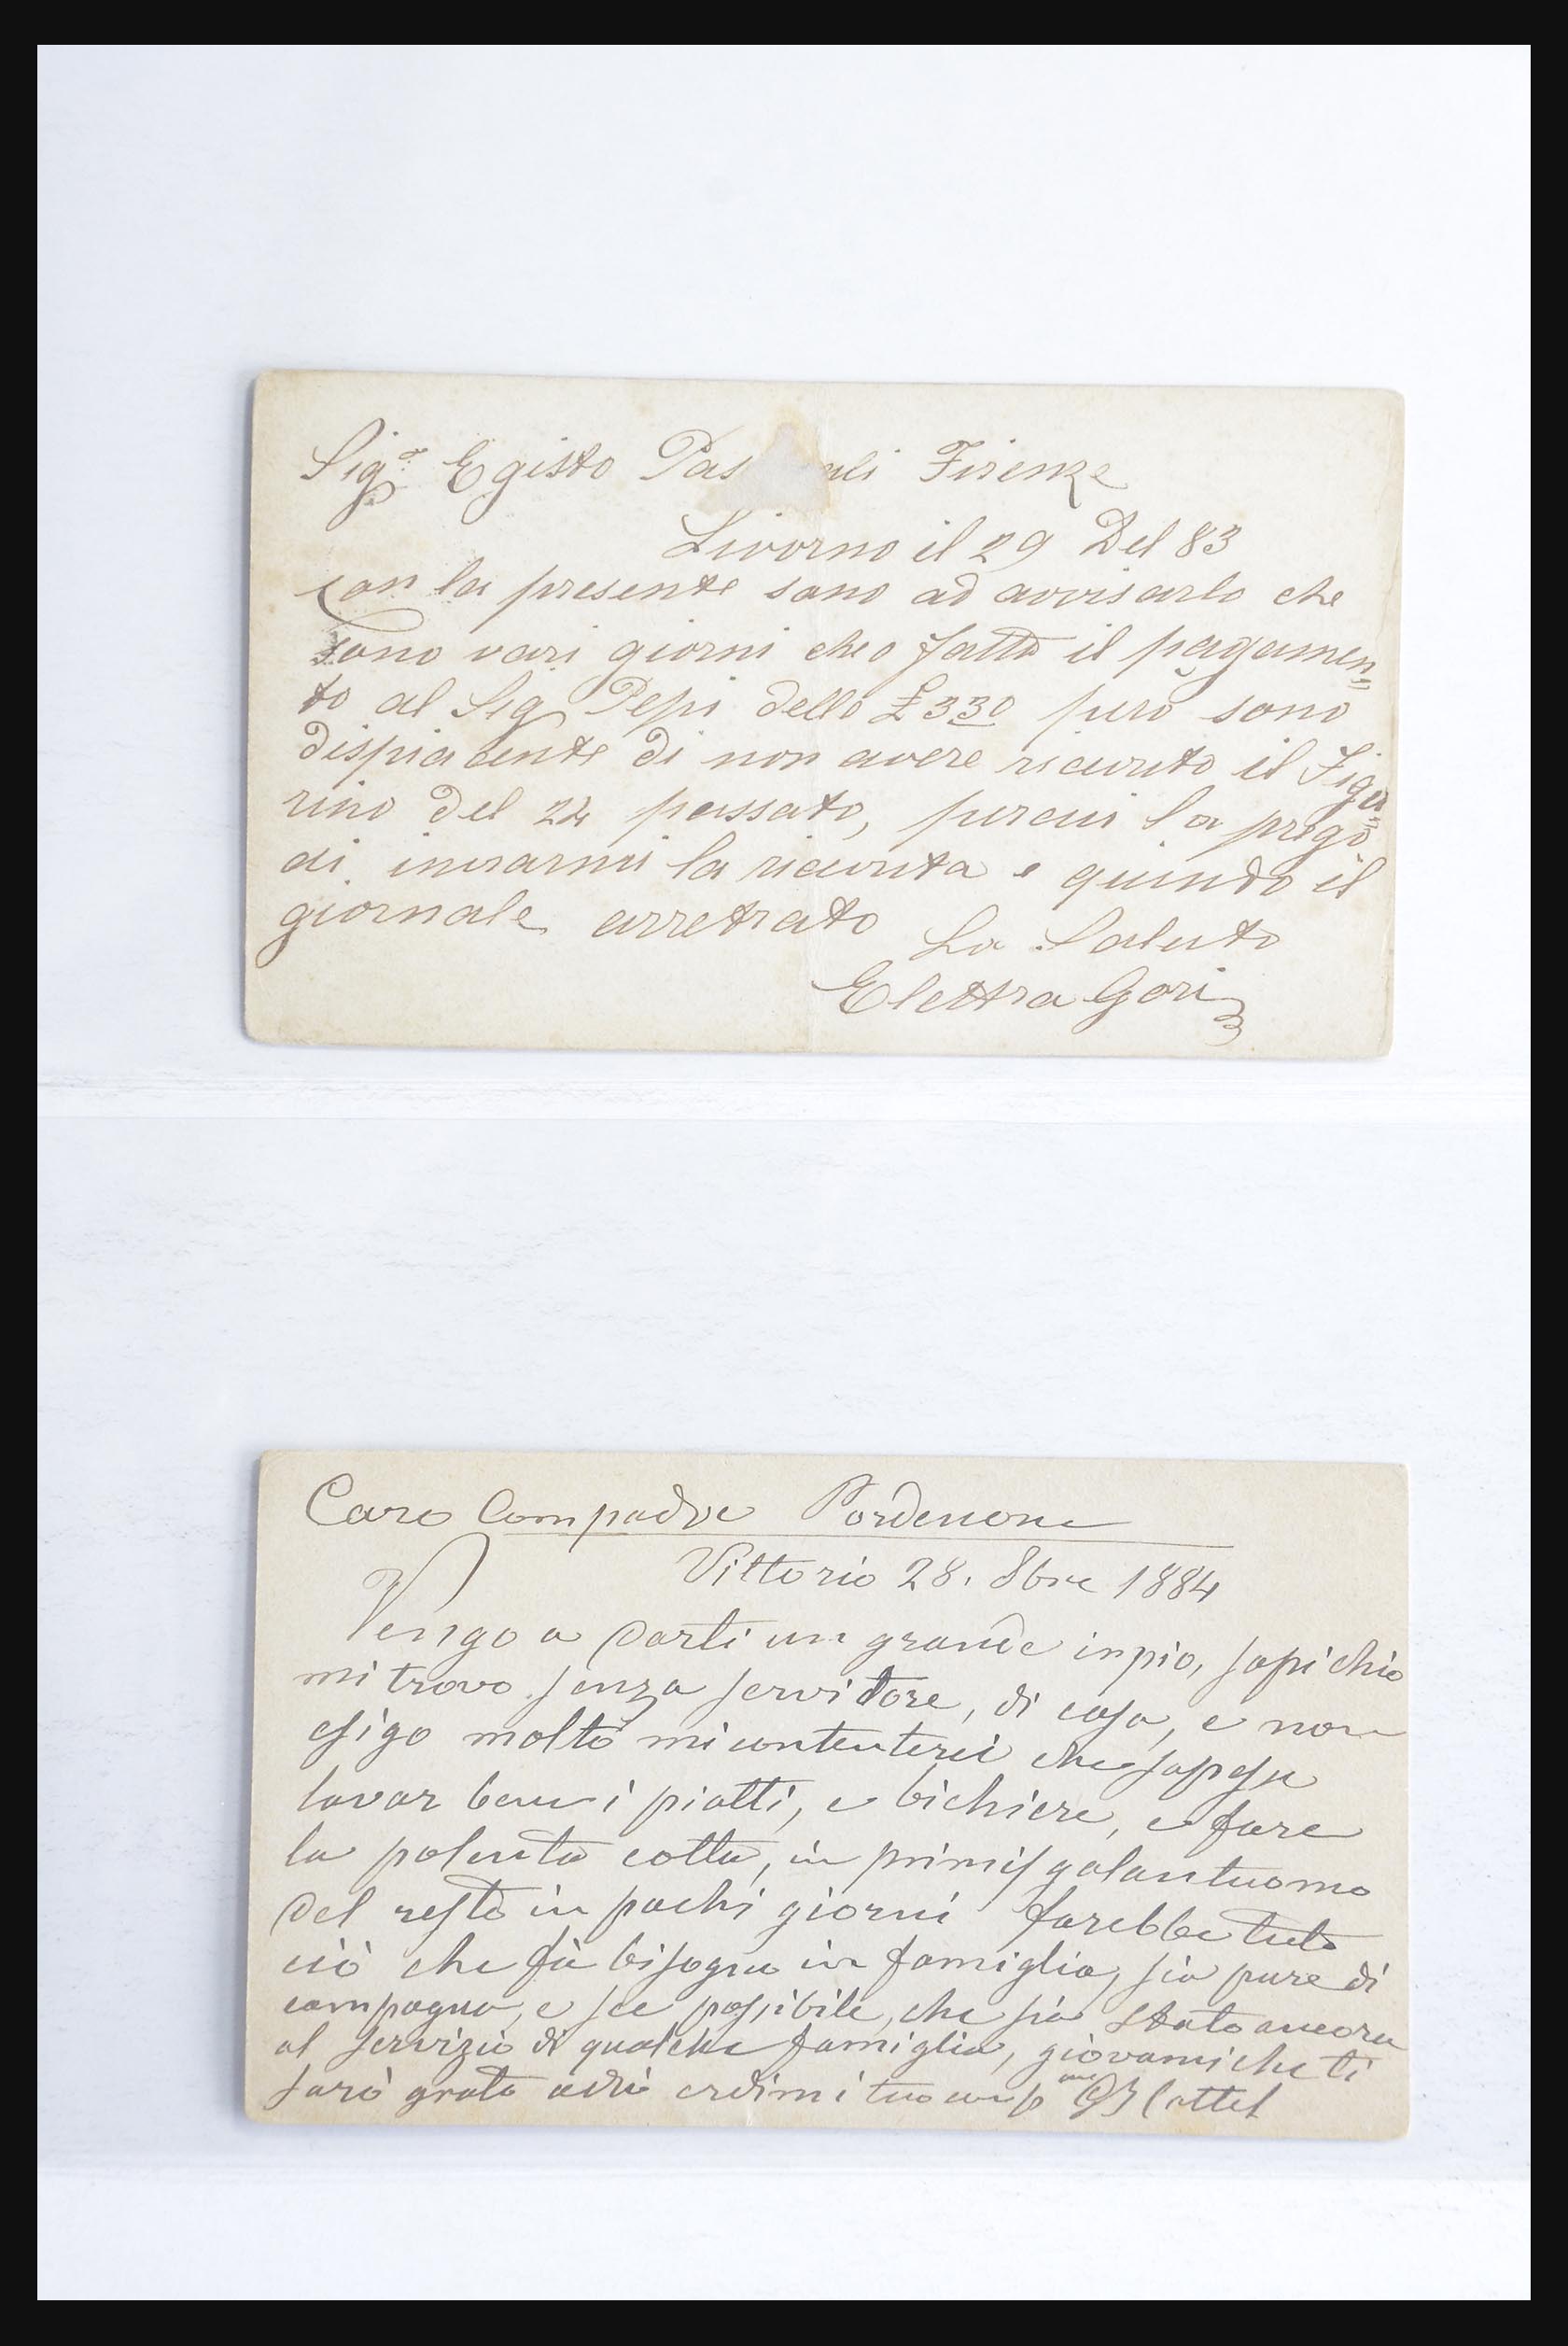 Sigr. Egisto Pas ali Firenze
Livorno il 29 Del 83
con la presente sono ad avvisarlo che
sono vari giorni che o fatto il pagamen=
to al Sig Pepi dello £ 330 però sono
dispiacente di non avere ricevuto il Figa=
rino del 24 passato, percui la prego
di inviarmi la ricevuta e quindo il
giornale arretrato La Saluto
Elettra Gori
Caro Compadre Pordenone
Vittorio 28. 8bre 1884
Vengo a darti un grande inpio, sapi chio
mi trovo senza servidore, di casa, e non
esigo molto mi contenterei che sapesse
lavar bene i piatti, e bichiere, e fare
la polenta cotta, in primis galantuomo
del resto in pochi giorni farebbe tuto
ciò che fà bisogno in famiglia, sia pure di
campagna, e see possibile, che sia stato ancora
al servizio di qualche famiglia, giovami che ti
sarò grato adio credimi tuo